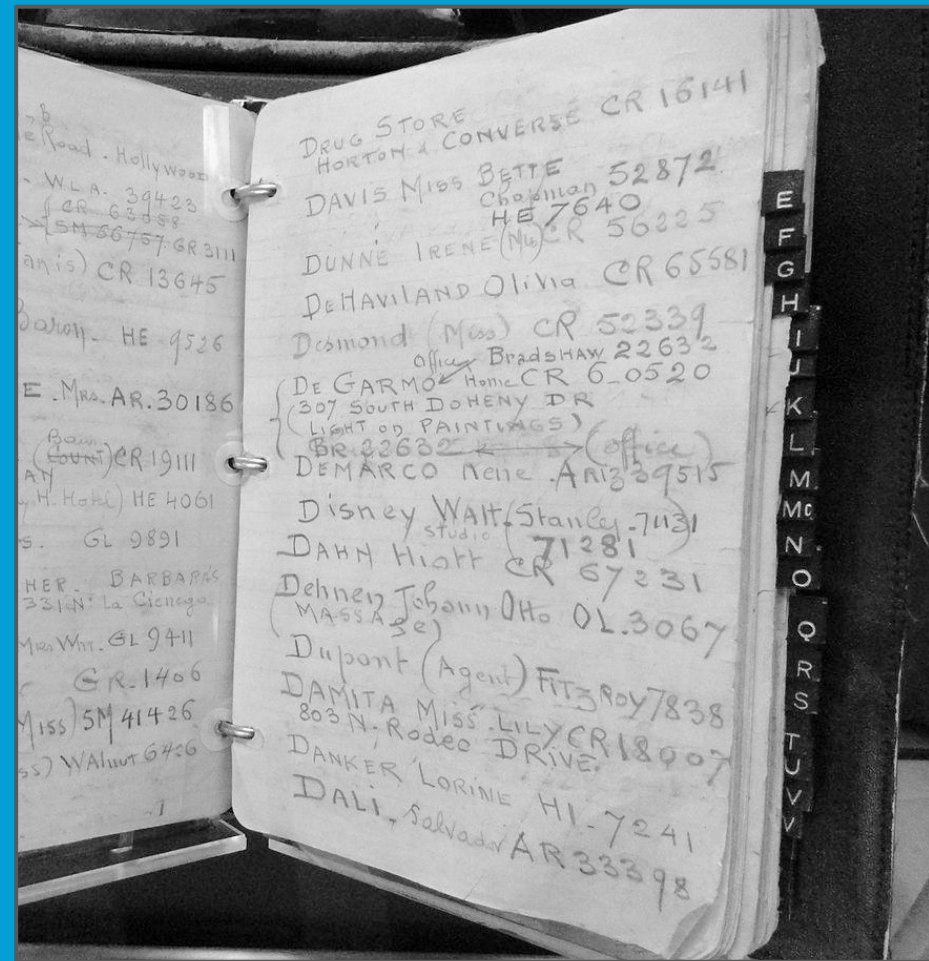 B
e Road. Hollywood
- W.L.A. 39423
CR 63088
SM 66757. GR 3111
anis) CR 13645
Baron. HE 9526
E. MRS. AR. 30186
(COUNT) CR 19111
H. Hotel) HE 4061
S. GL 9891
HER. BARBARA'S
331 N. La Cienega
Mrs Wm. GL 9411
GR. 1406
Miss) SM 41426
ss) WAlnut 6426
DRUG STORE
HORTON & CONVERSE CR 16141
DAVIS MISS BETTE
Chapman 52872
HE 7640
DUNNE IRENE (Nu) CR 56225
DEHAVILAND Olivia CR 65581
Desmond (Miss) CR 52339
Office BRADSHAW 22632
DE GARMO Home CR 6-0520
(307 SOUTH DOHENY DR
(LIGHT OD PAINTINGS)
BR 22632 (office)
DEMARCO Rene . ARiz 39515
Disney WALT. (Stanley. 71131
studio (71281)
DAHN Hiatt CR 67231
Dehnen Johann OTTo OL. 3067
(MASSAge)
Dupont (Agent) FITzROY 7838
DAMITA MISS LILY CR 18007
803 N. Rodeo DRIVE.
DANKER LORINE HI-7241
DALI - Salvador AR 33398
E
F
G
H
I
J
K
L
M
Mc
N
O
Q
R
S
T
U
V